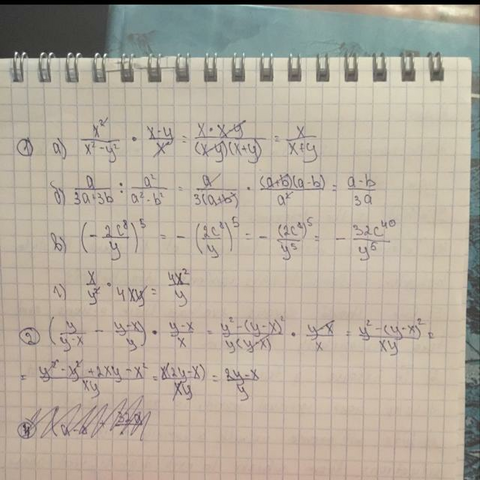 ① а) x²/(x²-y²) · (x-y)/x = (x·x-y)/((x-y)(x+y)) = x/(x+y)
б) a/(3a+3b) : a²/(a²-b²) = a/(3(a+b)) · ((a+b)(a-b))/a² = (a-b)/(3a)
в) (-2c⁸/y)⁵ = -(2c⁸/y)⁵ = -(2c⁸)⁵/y⁵ = -32c⁴⁰/y⁵
г) x/y² · 4xy = 4x²/y
② (y/(y-x) - (y-x)/y) · (y-x)/x = (y²-(y-x)²)/(y(y-x)) · (y-x)/x = (y²-(y-x)²)/(xy) =
= (y²-y²+2xy-x²)/(xy) = x(2y-x)/(xy) = (2y-x)/y